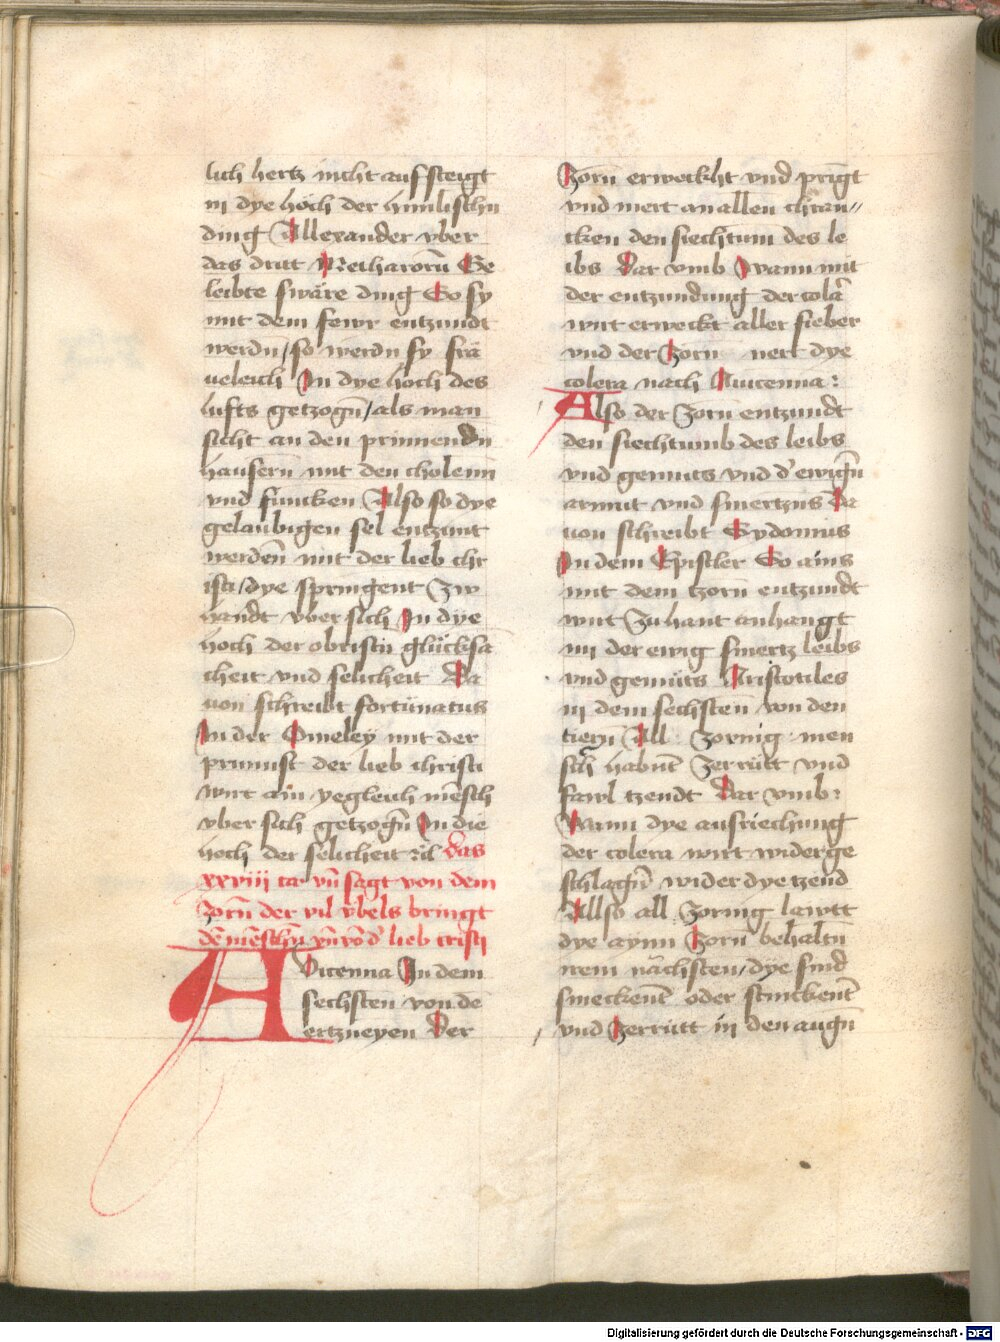 lich hertz nicht auf steigt
in dye höch der himlischn
ding Allexander vber
das dritt Metharorū Ge
leibte swäre ding So sy
mit dem fewr entzundt
werdn / so werdn sy frä
ueleich In dye hoch des
lufts getzogn̄ / als man
sicht an den prinnendn
hausern̄ mit den cholenn
vnd funcken Also so dye
gelaubigen sel entzunt
werden̄ mit der lieb chr
isti / dye springent Zw
handt vber sich In dye
hoch der obristn̄ glücksa
cheit vnd selicheit Da
uon schreibt fortunatus
In der Omeley mit der
prunnst der lieb christi
wirt ain yegleich mēsch
vber sich getzogn̄ In die
hoch der selicheit
das
xxviij ca vn̄ sagt von dem
Zorn̄ der vil vbels bringt
dē mēschn̄ vn̄ vō d' lieb cristi
AVicenna In dem
sechsten von dē
ertzneyen Der
Zorn erweckht vnd prīgt
vnd mert an allen chran //
cken den siechtum̄ des le
ibs Dar vmb Wann mit
der entzundung der colā
wirt erweckt aller fieber
vnd der Zorn nert dye
colera nach Auicenna :
Also der Zorn entzundt
den siechtumb des leibs
vnd gemuts vnd d' ewign̄
armut vnd smertzns Da
uon schreibt Sydonius
In dem Epistler So ains
mit dem tzorn entzundt
wirt Zu hant anhangt
im der ewig smertz leibs
vnd gemüts Aristotiles
in dem sechsten von den
tiern All Zornig men
sch habnt̄ Zerrütt vnd
fawl tzendt Dar vmb :
Wann dye aufriechung
der colera wirt widerge
schlagn̄ wider dye tzend
Allso all Zornig lawtt
dye aynn Zorn behaltn̄
irem nächsten / dye sind
smeckent̄ oder stinckent̄
vnd Zerrütt in den augn̄
Digitalisierung gefördert durch die Deutsche Forschungsgemeinschaft - DFG